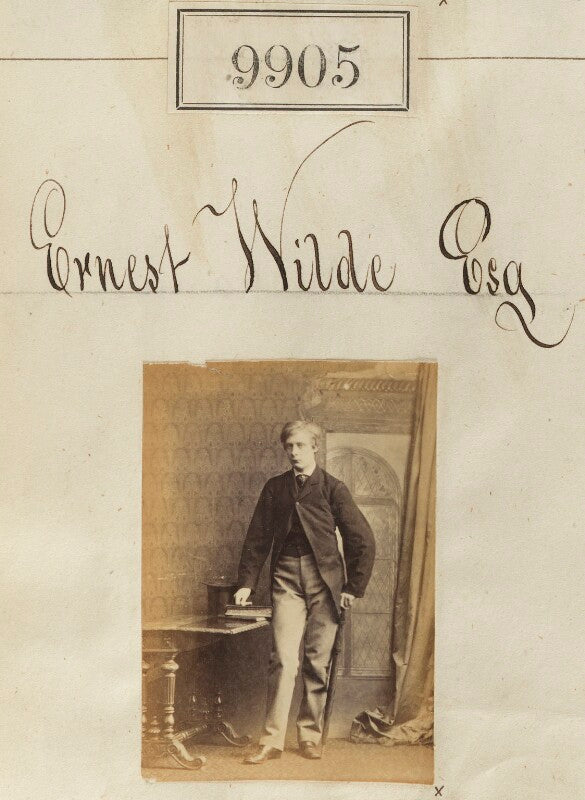 9905
Ernest Wilde Esq